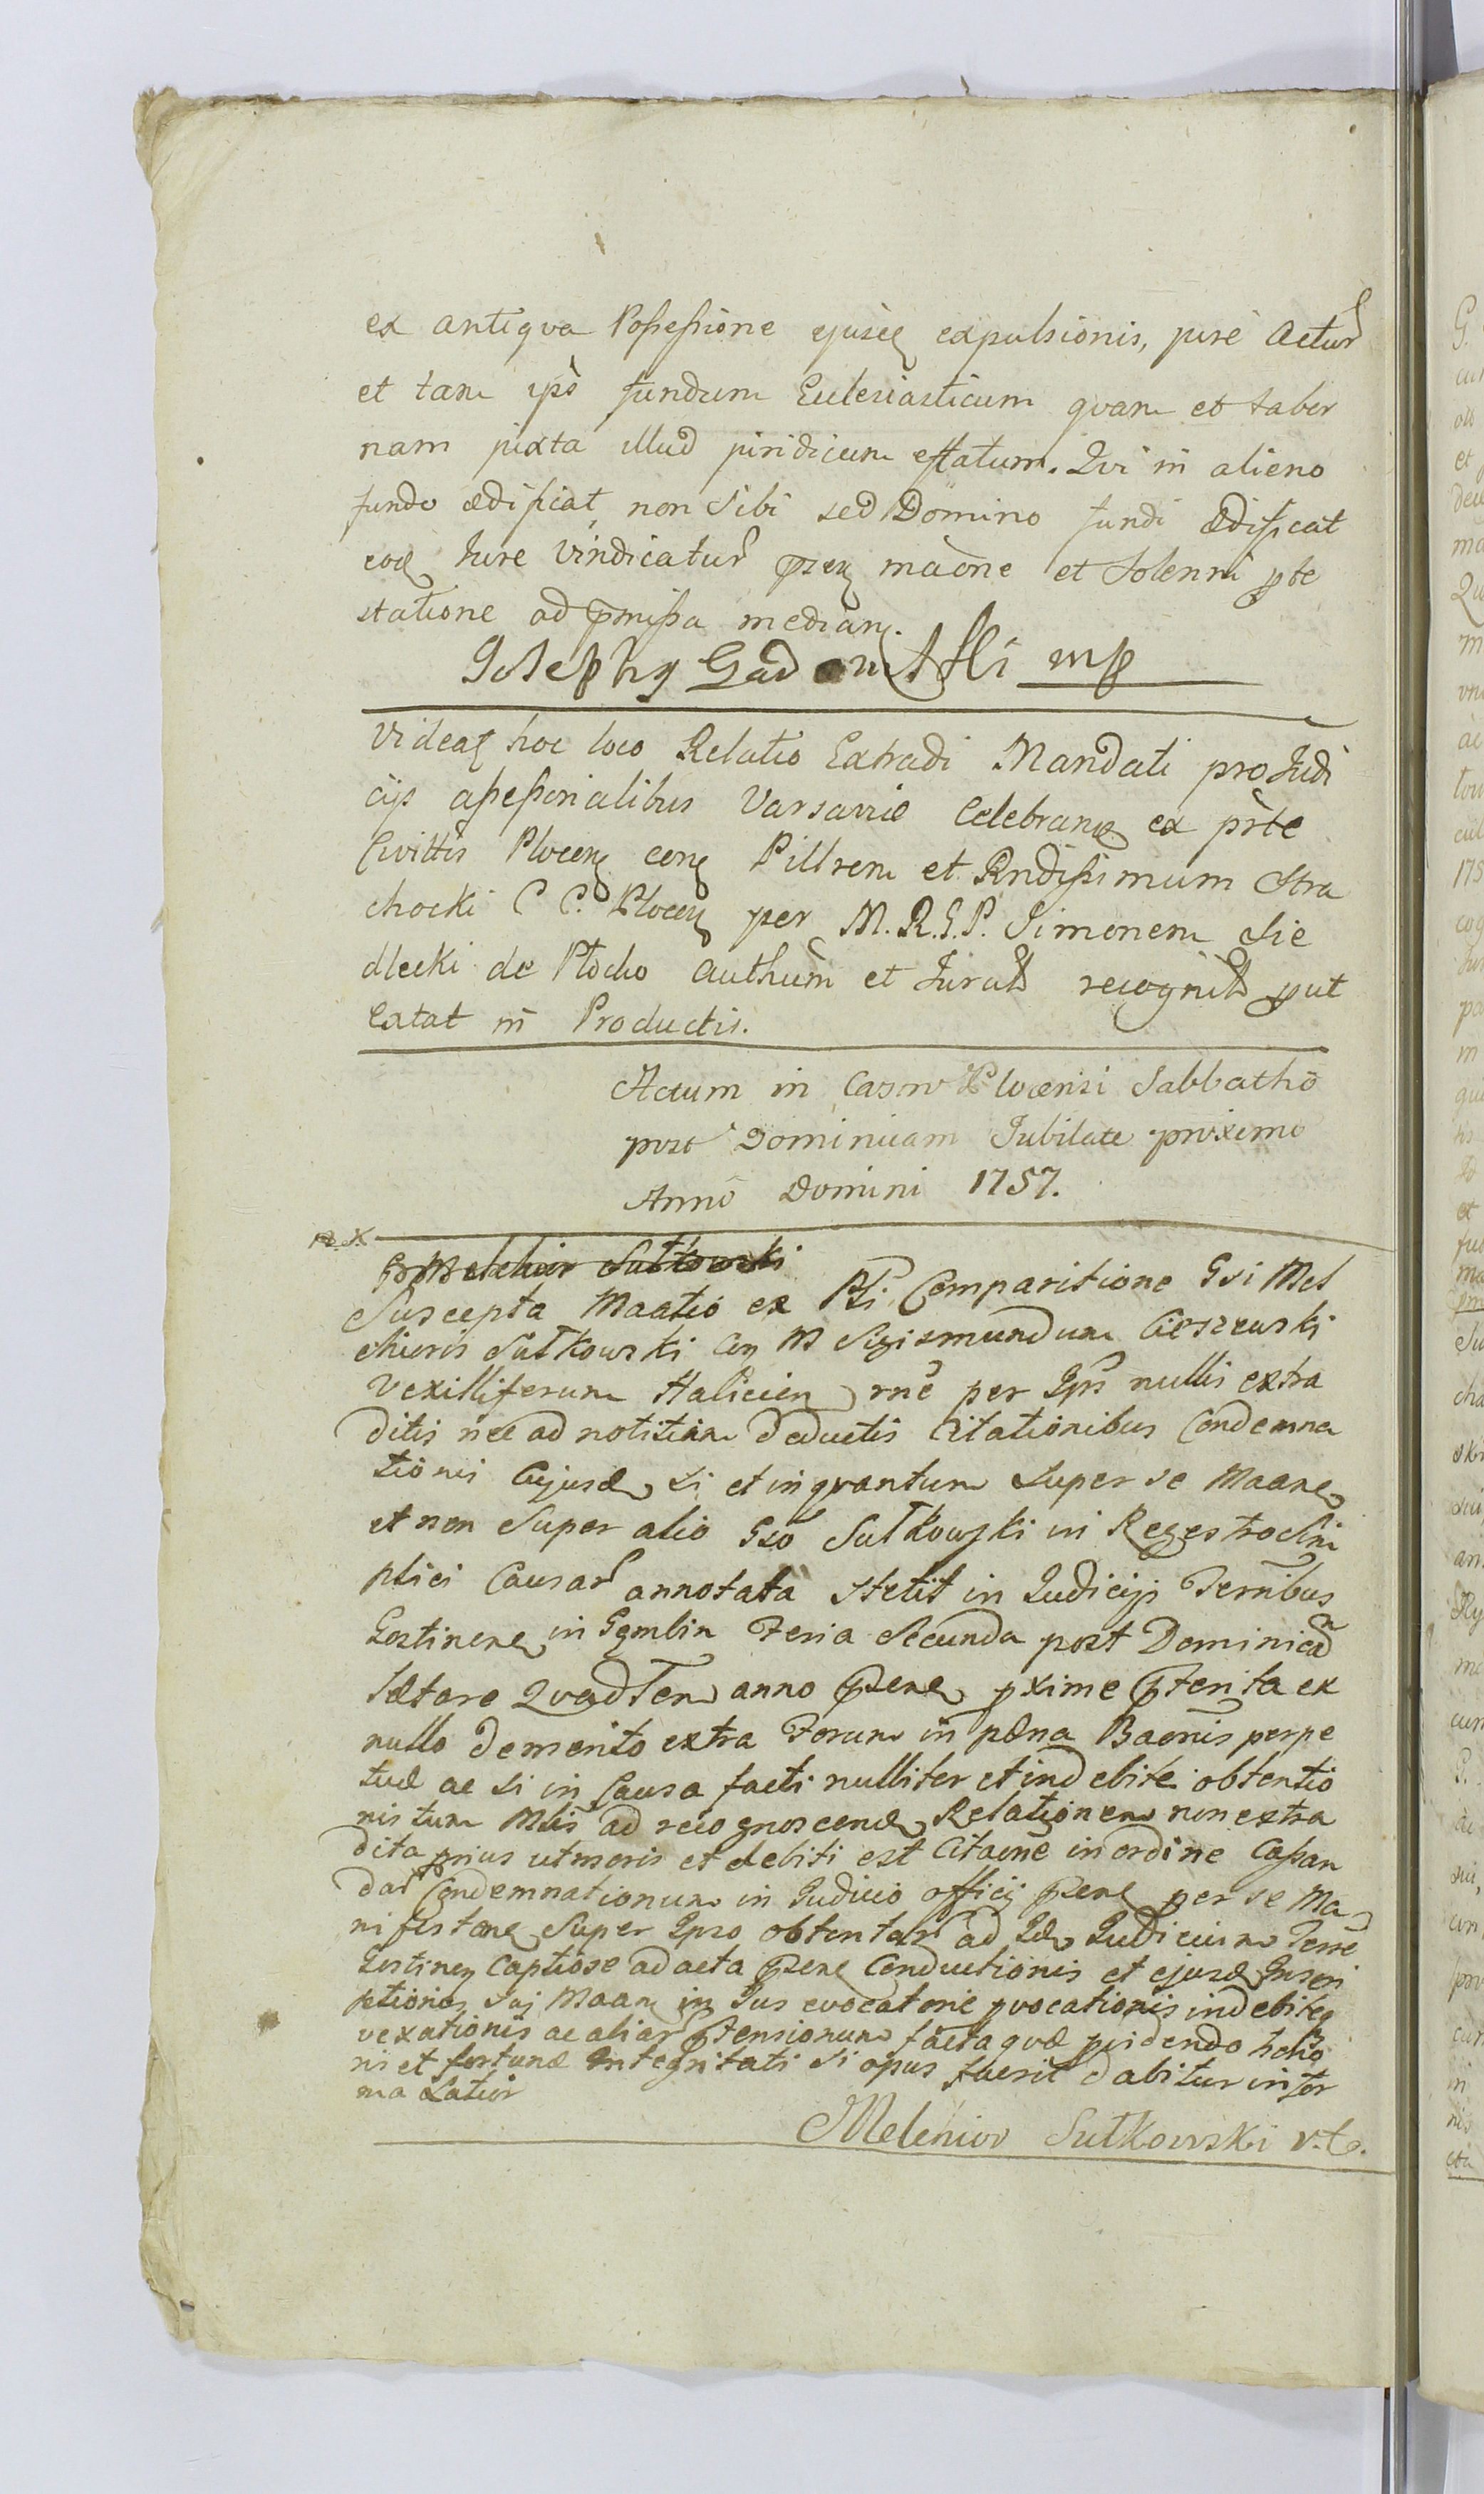 ex antiqva Possessione ejusq expulsionis, pure Actur
et tam ips fundum Eclesiasticum qvam et taber
nam juxta illud juridicum effatum. Qvi in alieno
fundo ædificat non Sibi sed Domino fundi Ædificat
eoq Jure Vindicatur præn maone et Solenni pte
statione ad pmissa median.
Josephy mp
Videat hoc loco Relatio Extradi Mandati pro Judi
cijs assessorialibus Varsaviæ Celebranæ ex prte
Civittis Plocen con P Illrem et Rndissimum Stra
chocki C C. Plocen per M. R. G. P. Simonem Sie
dlecki de Płocko authum et Jurat recognit put
Extat in Productis.
Actum in Castro Plocensi Sabbatho
post Dominicam Jubilate proximo
Anno Domini 1757.
G Melchior Sutkowski
Suscepta Maatio ex Pti Comparitione Gsi Mel
chioris Sutkowski con M Sigismundum Cieszewski
Vexilliferum Halicien rne per Ips nullis extra
ditis nec ad notitiam deductis Citationibus Condemna
tionis Cujusd si et in qvantum super se Maane
et non Super alio Gso Sutkowski in Regestro Sim
plici Causar annotata stetit in Judicijs Ternibus
Gostinene in Gąmbin Feria Secunda post Dominicam
Lætare Qvad Ten anno Psene pxime Pterita ex
nullo demerito extra Forum in pæna Baonis perpe
tuæ ac si in Causa facti nulliter et indebite obtentio
nis tum Mtis ad recognoscend Relationem non extra
dita prius ut moris et debiti est Citaone in ordine Cassan
dar Condemnationum in Judicio officij Psene per se Ma
nifestane Super Ipso obtentar ad Id Judicium Terre
Gostinen Captiose ad acta Psene Conductionis et ejusd Inscri
ptionis Sui Maane in Jus evocatorie pvocationis indebiteq
vexationis ac aliar Ptensionum facta qvæ pvidendo hono
ri et fortunæ Integritati si opus fuerit dabitur in for
ma Latior
Melchior Sutkowski